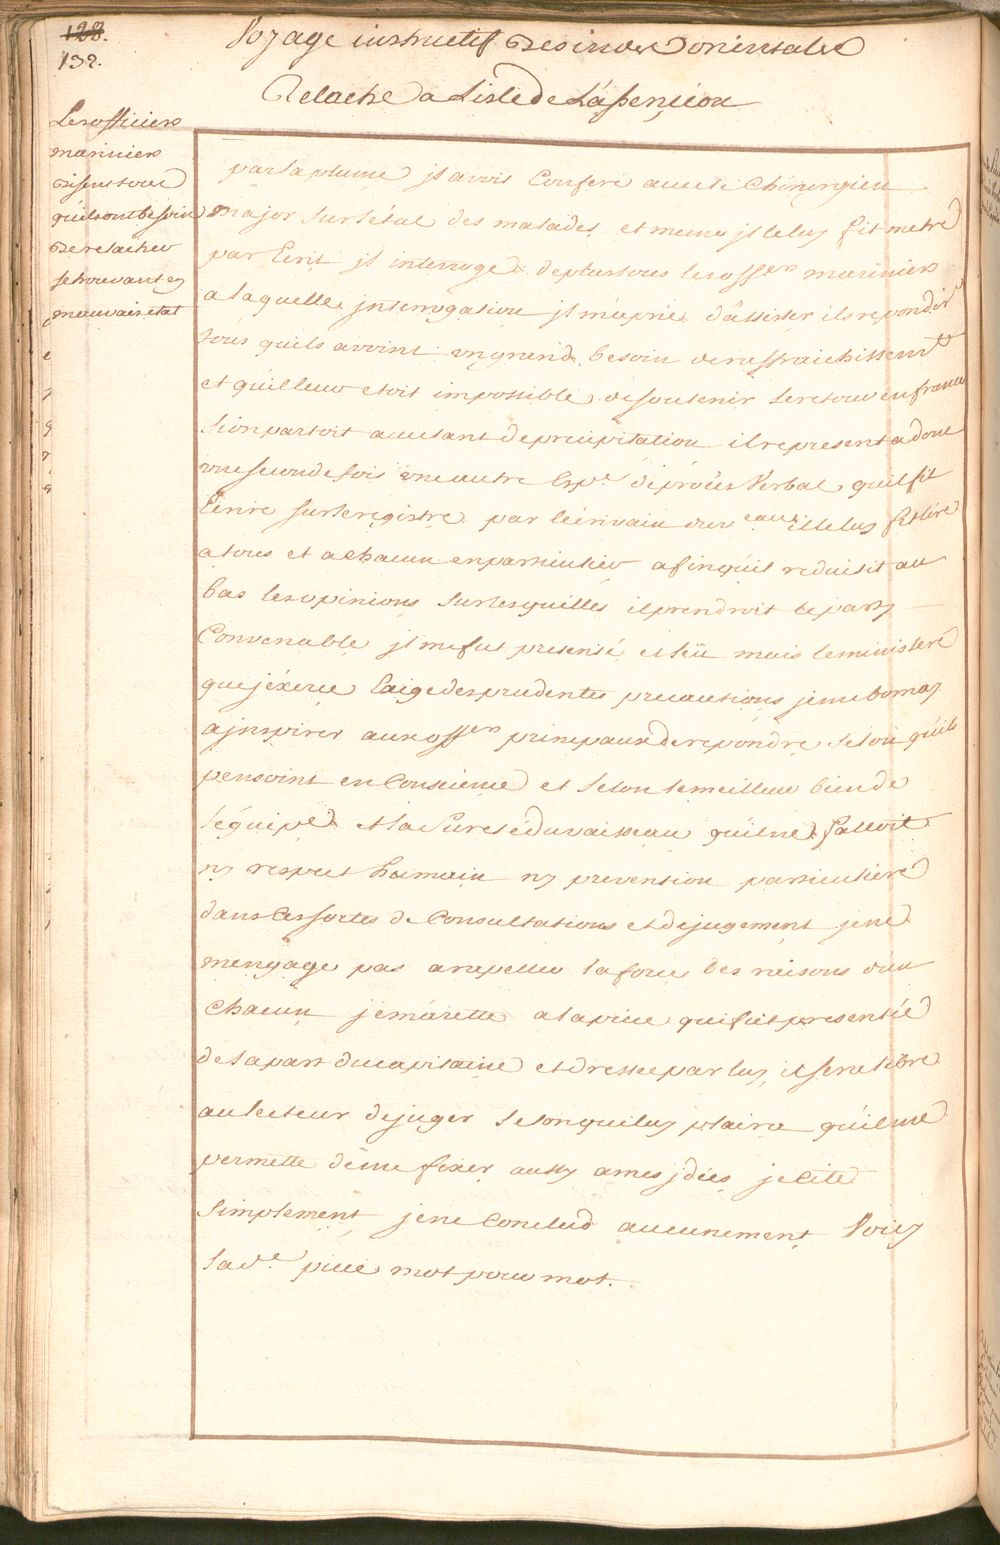 128.
132.
Voyage instructif Des indes Orientales
Relache a Lisle de Lassençion
Les officiers
mariniers
disent tous
quils ont besoin
De relacher
se trouvant en
mauvais etat
par la plume jl avoit Conferé avec le Chirurgien
major sur l'état des malades et meme jl le luy fit metre
par Ecrit jl interrogea de plus tous les offers mariniers
a laquelle jnterrogation jl m'a prié d'assister ils repondirt
tous quils avoint un grand besoin de raffraichissemts
et quil leur etoit impossible de soutenir le retour en france
si on partoit avec tant de precipitation il representa donc
une seconde fois une autre Espe. de procès Verbal, quil fit
Ecrire sur le registre par lécrivain du veau. il le luy fit lire
a tous et a chacun en particulier afin quil reduisit au
bas les opinions sur lesquelles il prendroit le party
Convenable jl me fut presenté et leü mais le ministeré
que jéxerce Exige des prudentes precautions je me bornay
a jnspirer aux offers principaux de repondre selon quils
pensoint en Consience et selon le meilleur bien de
léquipe. et la sureté du vaisseau quil ne falloit
ny respect humain ny prevention particuliere
dans Ces sortes de Consultations et de jugement je ne
mengage pas a rapeller la force des raisons d'un
Chacun je m'arette a la piece qui fut presentée
de la part du capitaine et dressée par luy, il sera libre
au lecteur de juger selon quil luy plaira quil me
permette de me fixer aussy a mes jdées je Cite
simplement je ne Conclud aucunement Voicy
la de. piece mot pour mot.